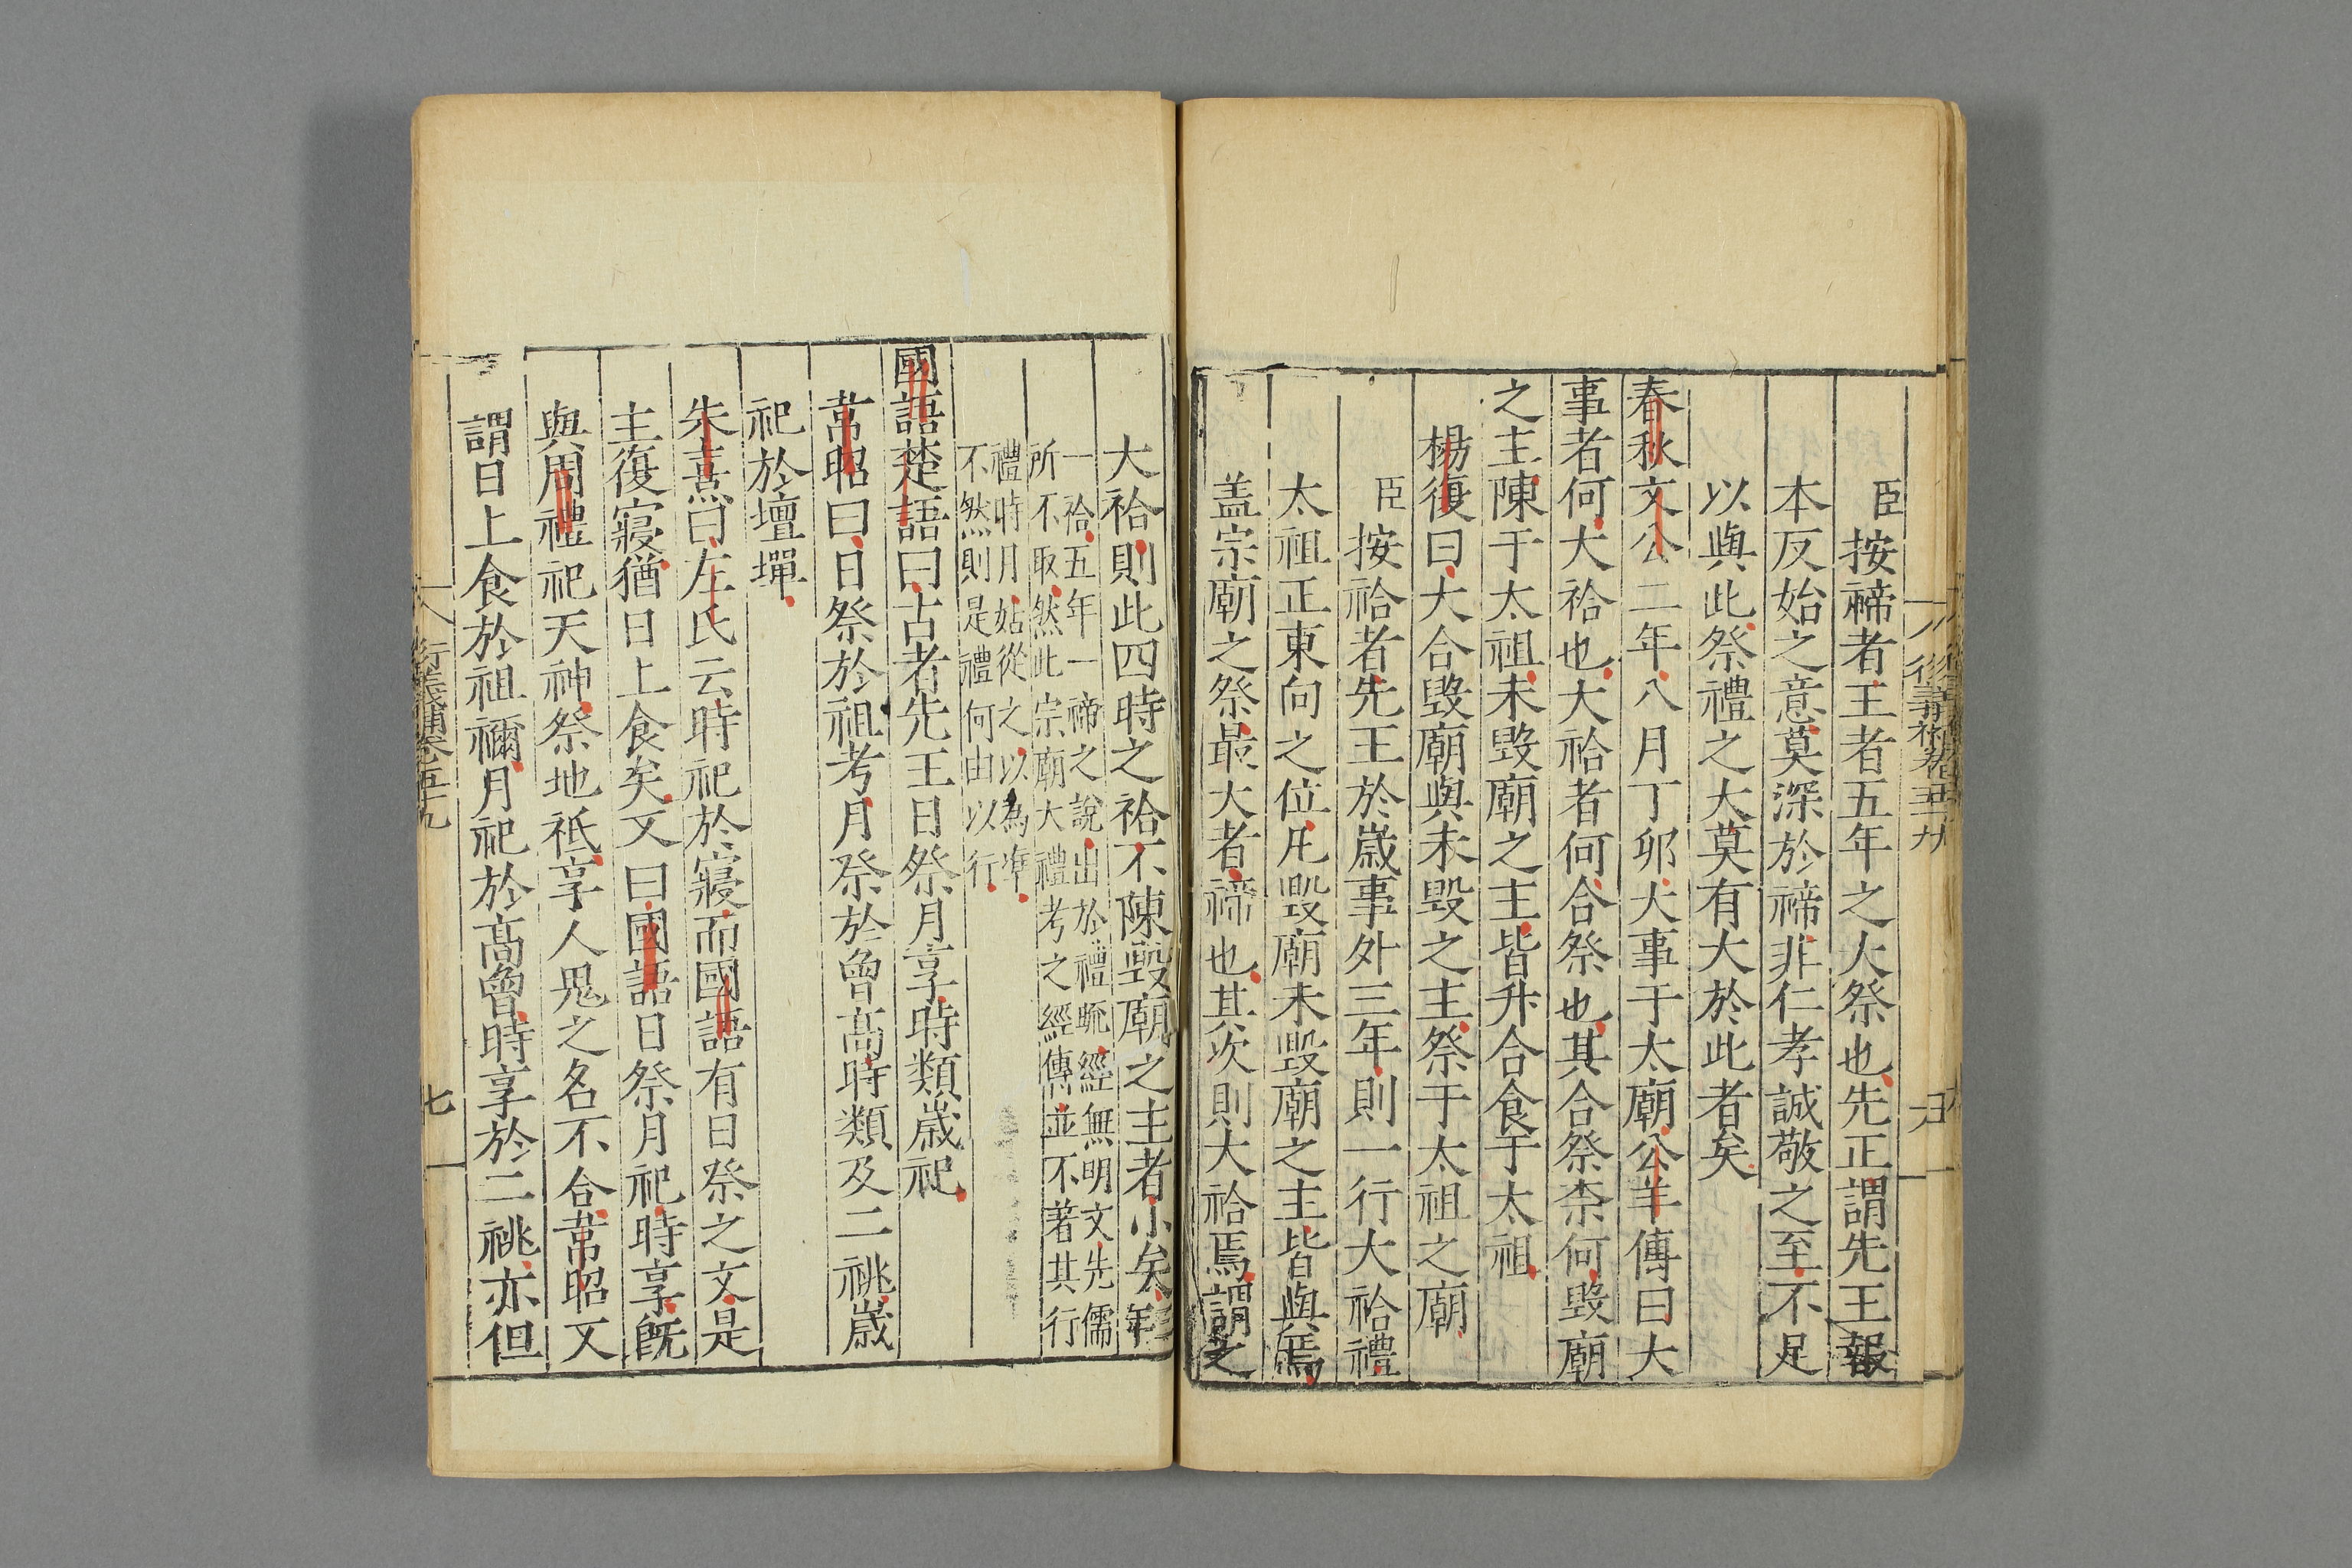 臣按禘者王者五年之大祭也先正謂先王報
本反始之意莫深於禘非仁孝誠敬之至不足
以與此祭禮之大莫有大於此者矣
春秋文公二年八月丁卯大事于太廟公羊傳曰大
事者何大祫也大祫者何合祭也其合祭柰何毀廟
之主陳于太祖未毀廟之主皆升合食于太祖
楊復曰大合毀廟與未毀之主祭于太祖之廟
臣按祫者先王於歲事外三年則一行大祫禮
太祖正東向之位凡毀廟未毀廟之主皆與焉
盖宗廟之祭最大者禘也其次則大祫焉謂之
大祫則此四時之祫不陳毀廟之主者小矣三年
一祫五年一禘之說出於禮緯經無明文先儒
所不取然此宗廟大禮考之經傳並不著其行
禮時月姑從之以為準
不然則是禮何由以行
國語楚語曰古者先王日祭月享時類歲祀
韋昭曰日祭於祖考月祭於曾高時類及二祧歲
祀於壇墠
朱熹曰左氏云時祀於寢而國語有日祭之文是
主復寢猶日上食矣又曰國語日祭月祀時享既
與周禮祀天神祭地祇享人鬼之名不合韋昭又
謂日上食於祖禰月祀於高曾時享於二祧亦但
衍義補卷五十九
七